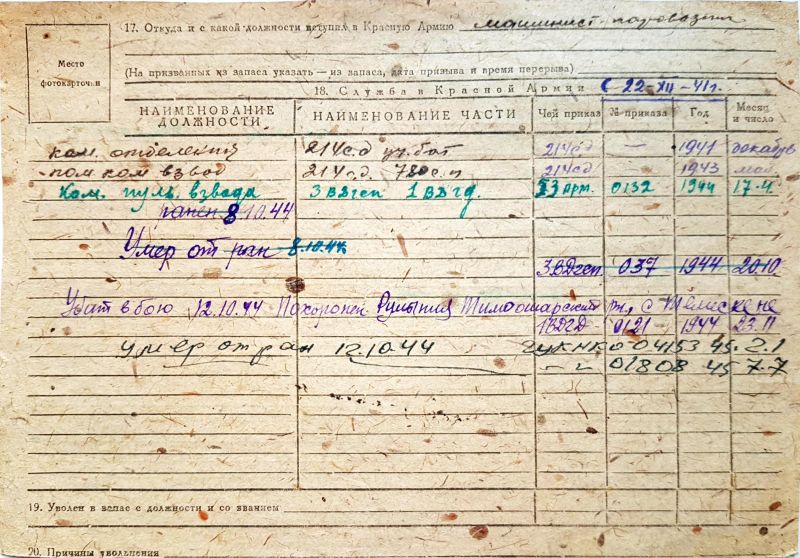 17. Откуда и с какой должности вступил в Красную Армию машинист паровозный
Место
фотокарточки
(На призванных из запаса указать — из запаса, дата призыва и время перерыва)
18. Служба в Красной Армии с 22-XII-41 г.
НАИМЕНОВАНИЕ ДОЛЖНОСТИ НАИМЕНОВАНИЕ ЧАСТИ Чей приказ № приказа Год Месяц и число
ком. отделения 214 с.д. уч. бат 214 сд — 1941 декабрь
пом ком взвод 214 с.д. 780 с.п 214 сд 1943 май
Ком. пуль. взвода 3 ВДгсп 1 ВДгд. 53 Арм. 0132 1944 17.4.
ранен 8.10.44
Умер от ран 8.10.44
3 ВДгсп 037 1944 20.10.
Убит в бою 12.10.44 Похоронен Румыния Тимишоарский с
1ВДгд 0121 1944 23.11
Умер от ран 12.10.44 ГУК НКО 04153 45. 2.1
— " — 01808 45 7.7
19. Уволен в запас с должности и со званием
20. Причины увольнения